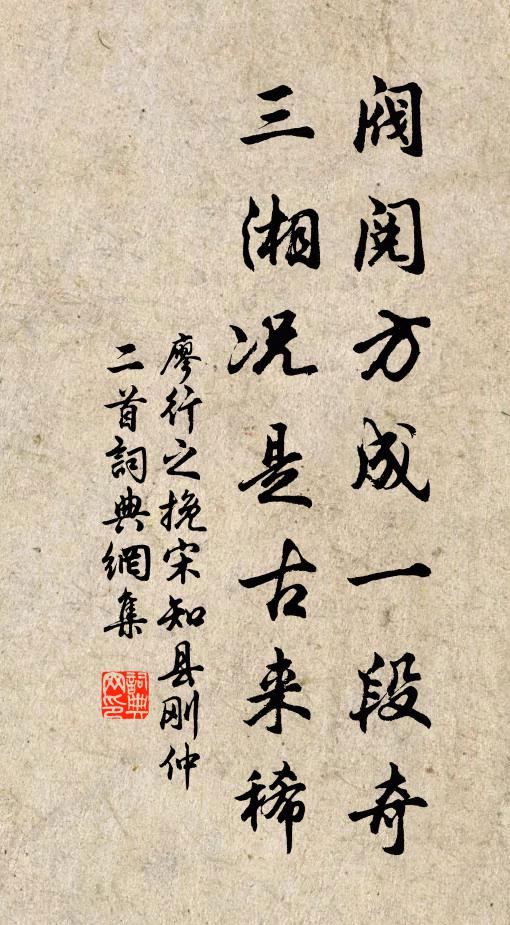 阀阅方成一段奇
三湘况是古来稀
廖行之挽宋知县刚仲
二首詞典網集
詞典網印